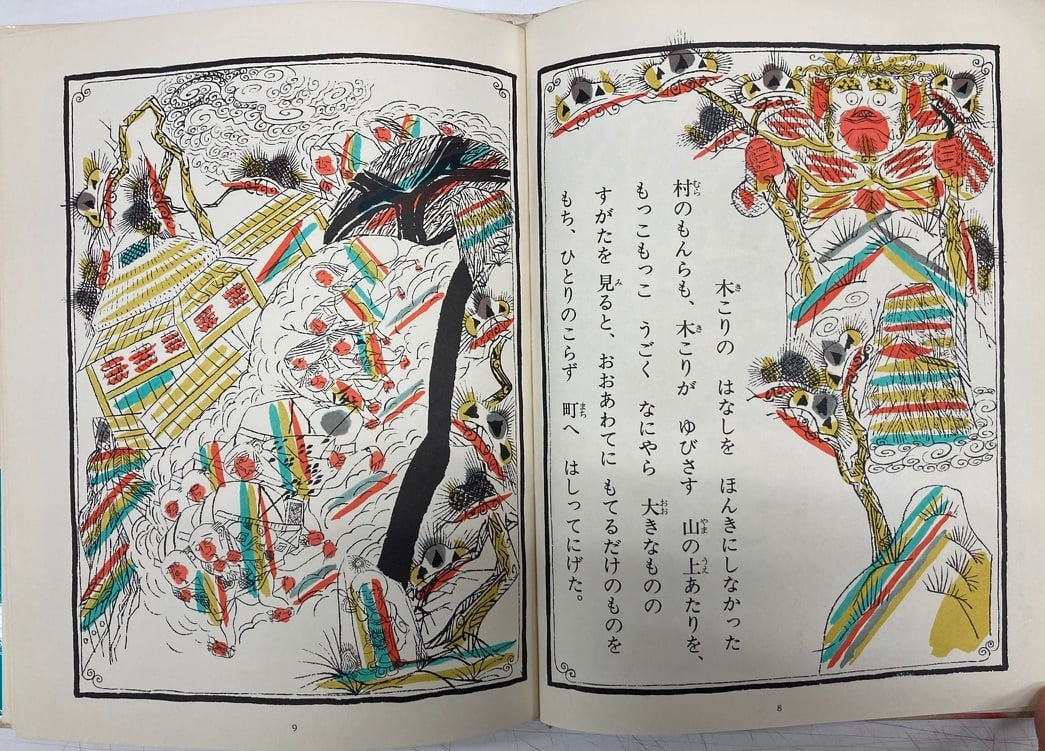 木こりの　はなしを　ほんきにしなかった
村のもんらも、木こりが　ゆびさす　山の上あたりを、
もっこもっこ　うごく　なにやら　大きなものの
すがたを　見ると、おおあわてに　もてるだけのものを
もち、ひとりのこらず　町へ　はしってにげた。
8
9